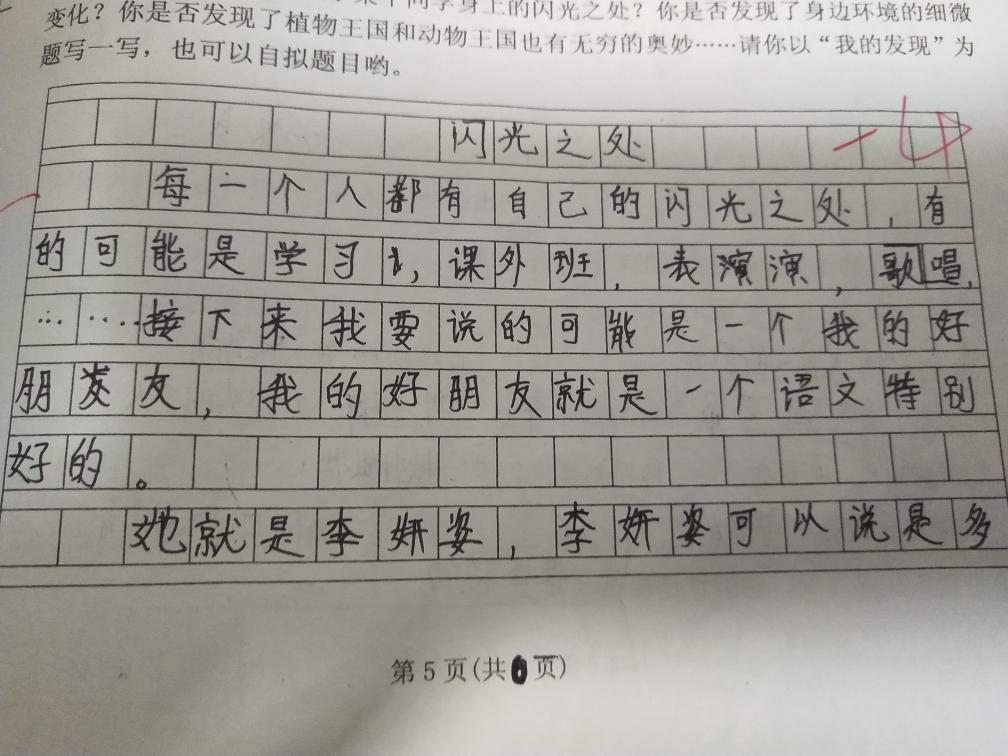 同学身上的闪光之处？你是否发现了身边环境的细微
变化？你是否发现了植物王国和动物王国也有无穷的奥妙……请你以“我的发现”为
题写一写，也可以自拟题目哟。
闪光之处
每一个人都有自己的闪光之处，有
的可能是学习，课外班，表演演，歌唱，
……接下来我要说的可能是一个我的好
朋友友，我的好朋友就是一个语文特别
好的。
她就是李妍姿，李妍姿可以说是多
第5页(共6页)